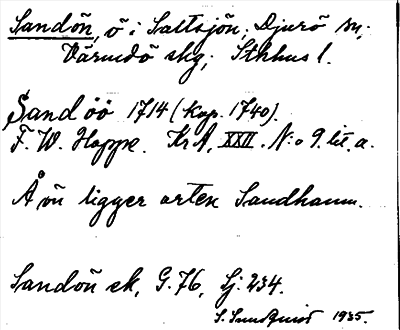 Sandön, ö i Saltsjön; Djurö sn;
Värmdö skg; Sthlms l.
Sandöö 1714 (kop. 1740).
F. W. Hoppe. KrA, XXII. N:o 9. lit. a.
Å ön ligger orten Sandhamn.
Sandön ek, G. 76, Sj: 234.
S. Sundquist 1935.